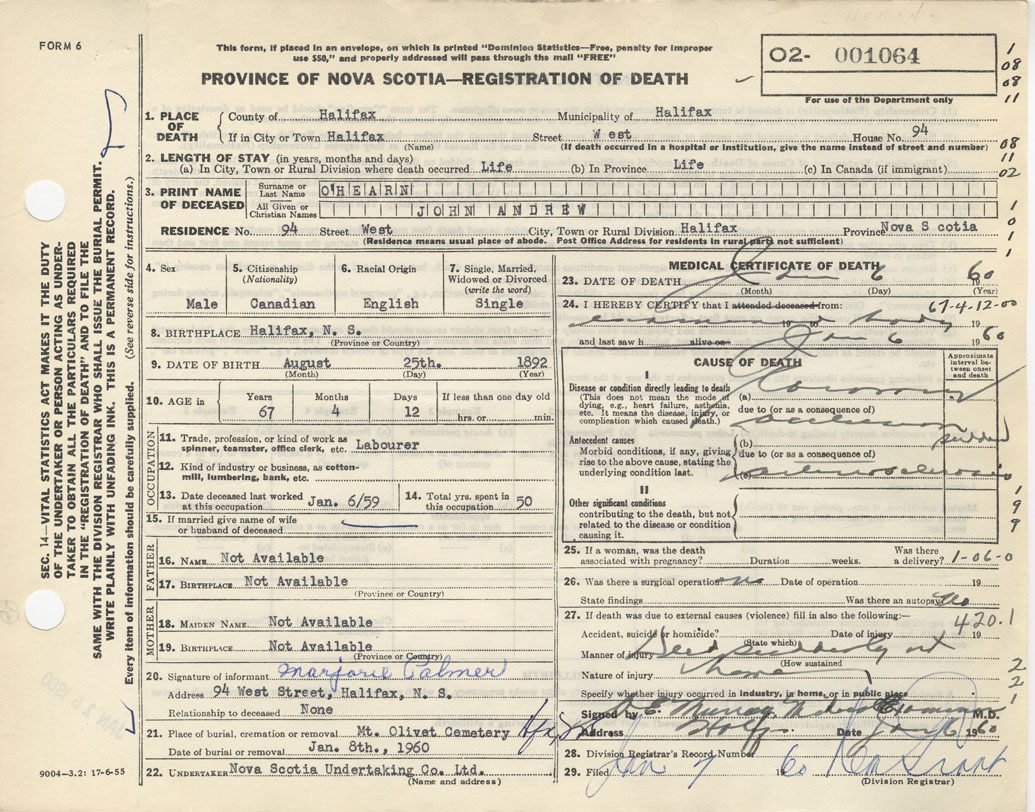 FORM 6
This form, if placed in an envelope, on which is printed "Dominion Statistics—Free, penalty for improper
use $50," and properly addressed will pass through the mail "FREE"
PROVINCE OF NOVA SCOTIA—REGISTRATION OF DEATH
02- 001064
For use of the Department only
1
08
08
11
08
11
02
1
0
1
1
SEC. 14—VITAL STATISTICS ACT MAKES IT THE DUTY
OF THE UNDERTAKER OR PERSON ACTING AS UNDER-
TAKER TO OBTAIN ALL THE PARTICULARS REQUIRED
IN THE "REGISTRATION OF DEATH" AND TO FILE THE
SAME WITH THE DIVISION REGISTRAR WHO SHALL ISSUE THE BURIAL PERMIT.
WRITE PLAINLY WITH UNFADING INK. THIS IS A PERMANENT RECORD.
Every item of information should be carefully supplied. (See reverse side for instructions.)
1. PLACE OF DEATH
County of Halifax Municipality of Halifax
If in City or Town Halifax Street West House No. 94
(Name) (If death occurred in a hospital or institution, give the name instead of street and number)
2. LENGTH OF STAY (in years, months and days)
(a) In City, Town or Rural Division where death occurred Life (b) In Province Life (c) In Canada (if immigrant)
3. PRINT NAME OF DECEASED
Surname or Last Name O'HEARN
All Given or Christian Names JOHN ANDREW
RESIDENCE No. 94 Street West City, Town or Rural Division Halifax Province Nova Scotia
(Residence means usual place of abode. Post Office Address for residents in rural parts not sufficient)
4. Sex 5. Citizenship (Nationality) 6. Racial Origin 7. Single, Married, Widowed or Divorced (write the word)
Male Canadian English Single
8. BIRTHPLACE Halifax, N. S.
(Province or Country)
9. DATE OF BIRTH August 25th. 1892
(Month) (Day) (Year)
10. AGE in Years Months Days If less than one day old
67 4 12 hrs. or min.
OCCUPATION
11. Trade, profession, or kind of work as
spinner, teamster, office clerk, etc. Labourer
12. Kind of industry or business, as cotton-
mill, lumbering, bank, etc.
13. Date deceased last worked at this occupation Jan. 6/59 14. Total yrs. spent in this occupation 50
15. If married give name of wife
or husband of deceased
FATHER
16. NAME Not Available
17. BIRTHPLACE Not Available
(Province or Country)
MOTHER
18. MAIDEN NAME Not Available
19. BIRTHPLACE Not Available
(Province or Country)
20. Signature of informant Marjorie Palmer
Address 94 West Street, Halifax, N. S.
Relationship to deceased None
21. Place of burial, cremation or removal Mt. Olivet Cemetery
Date of burial or removal Jan. 8th., 1960
22. UNDERTAKER Nova Scotia Undertaking Co. Ltd.
(Name and address)
9004—3.2: 17-6-55
MEDICAL CERTIFICATE OF DEATH
23. DATE OF DEATH Jan 6 60
(Month) (Day) (Year)
67-4-12-00
24. I HEREBY CERTIFY that I attended deceased from:
examined body 19 to 19
and last saw h alive on Jan 6 1960
CAUSE OF DEATH
Approximate interval between onset and death
I
Disease or condition directly leading to death
(This does not mean the mode of
dying, e.g., heart failure, asthenia,
etc. It means the disease, injury, or
complication which caused death.)
(a) Coronary
due to (or as a consequence of)
occlusion
sudden
Antecedent causes
Morbid conditions, if any, giving
rise to the above cause, stating the
underlying condition last.
(b)
due to (or as a consequence of)
(c) arteriosclerosis
II
Other significant conditions
contributing to the death, but not
related to the disease or condition
causing it.
1
9
8
25. If a woman, was the death associated with pregnancy? Duration weeks. Was there a delivery? 1-06-0
26. Was there a surgical operation no Date of operation 19
State findings Was there an autopsy No
27. If death was due to external causes (violence) fill in also the following:—
420.1
Accident, suicide or homicide? (State which) Date of injury 19
Manner of injury Died suddenly at
(How sustained)
Nature of injury home
Specify whether injury occurred in industry, in home, or in public place
2
2
1
Signed by D. E. Murray, Medical Examiner M.D.
Address Hlfx. Date Jan 6 1960
28. Division Registrar's Record Number
29. Filed Jan 7 1960
(Division Registrar)